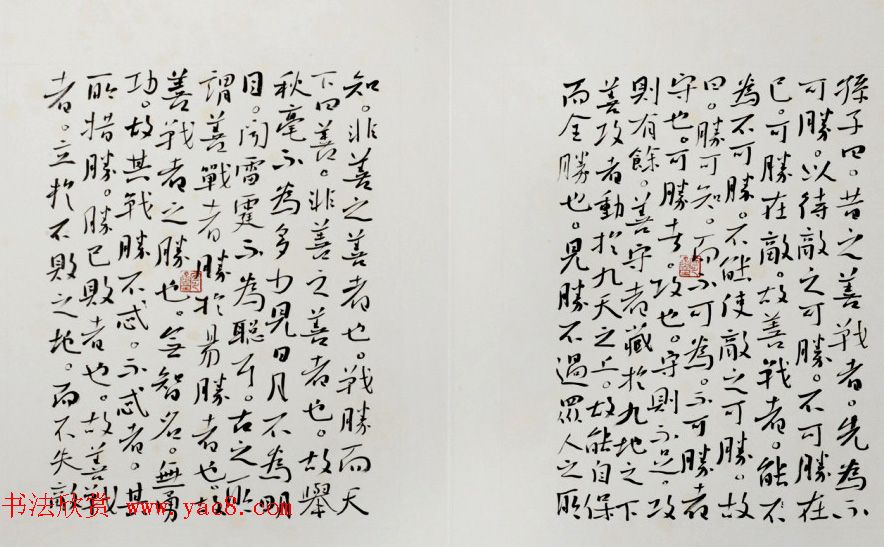 孫子曰。昔之善戰者。先為不
可勝。以待敵之可勝。不可勝在
己。可勝在敵。故善戰者。能不
為不可勝。不能使敵之可勝。故
曰。勝可知。而不可為。不可勝者
守也。可勝者。攻也。守則不足。攻
則有餘。善守者藏於九地之下
善攻者動於九天之上。故能自保
而全勝也。見勝不過眾人之所
知。非善之善者也。戰勝而天
下曰善。非善之善者也。故舉
秋毫不為多力見日月不為明
目。聞雷霆不為聰耳。古之所
謂善戰者勝於易勝者也故
善戰者之勝也。無智名。無勇
功。故其戰勝不忒。不忒者。其
所措勝。勝已敗者也。故善戰
者。立於不敗之地。而不失敵
书法欣赏 www.yac8.com